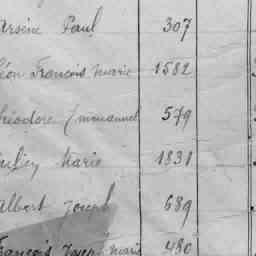 Arsène Paul 307
Léon François Marie 1582
Théodore Emmanuel 579
Julien Marie 1831
Albert Joseph 689
François Joseph Marie 480